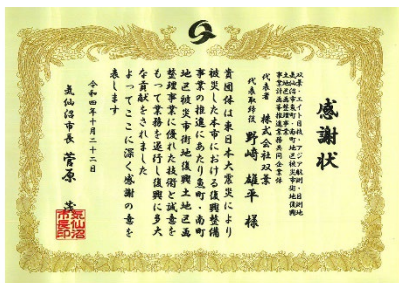 感謝状
双葉・エイト日技・アジア航測・日測地
気仙沼市魚町・南町地区被災市街地復興
土地区画整理事業
事業計画等推進業務共同企業体
代表者 株式会社双葉
代表取締役 野崎 雄平 様
貴団体は東日本大震災により
被災した本市における復興整備
事業の推進にあたり魚町・南町
地区被災市街地復興土地区画
整理事業に優れた技術と誠意を
もって業務を遂行し復興に多大
な貢献をされました
よってここに深く感謝の意を
表します
令和四年十月二十二日
気仙沼市長 菅原 茂
気仙沼市長印